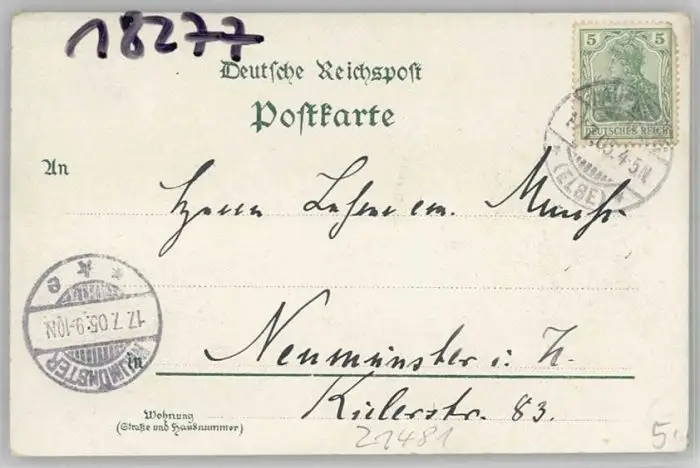 18277
Deutsche Reichspost
Postkarte
5 5
DEUTSCHES REICH
7.05.4-5N
*(ELBE)*
An
Herrn em.
NEUMÜNSTER
17.7.05.9-10N
* * e
in Neumünster i. H.
Kielerstr. 83.
Wohnung
(Straße und Hausnummer)
21481
5.